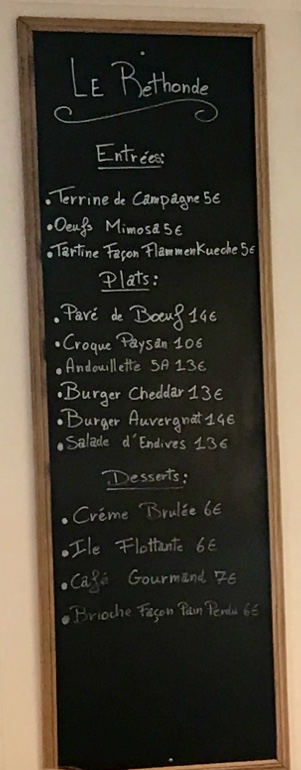 Le Rethonde
Entrées:
• Terrine de Campagne 5€
• Oeufs Mimosa 5€
• Tartine Façon FlammenKueche 5€
Plats:
• Pavé de Boeuf 14€
• Croque Paysan 10€
• Andouillette 5A 13€
• Burger Cheddar 13€
• Burger Auvergnat 14€
• Salade d'Endives 13€
Desserts:
• Créme Brulée 6€
• Ile Flottante 6€
• Café Gourmand 7€
• Brioche Façon Pain Perdu 6€